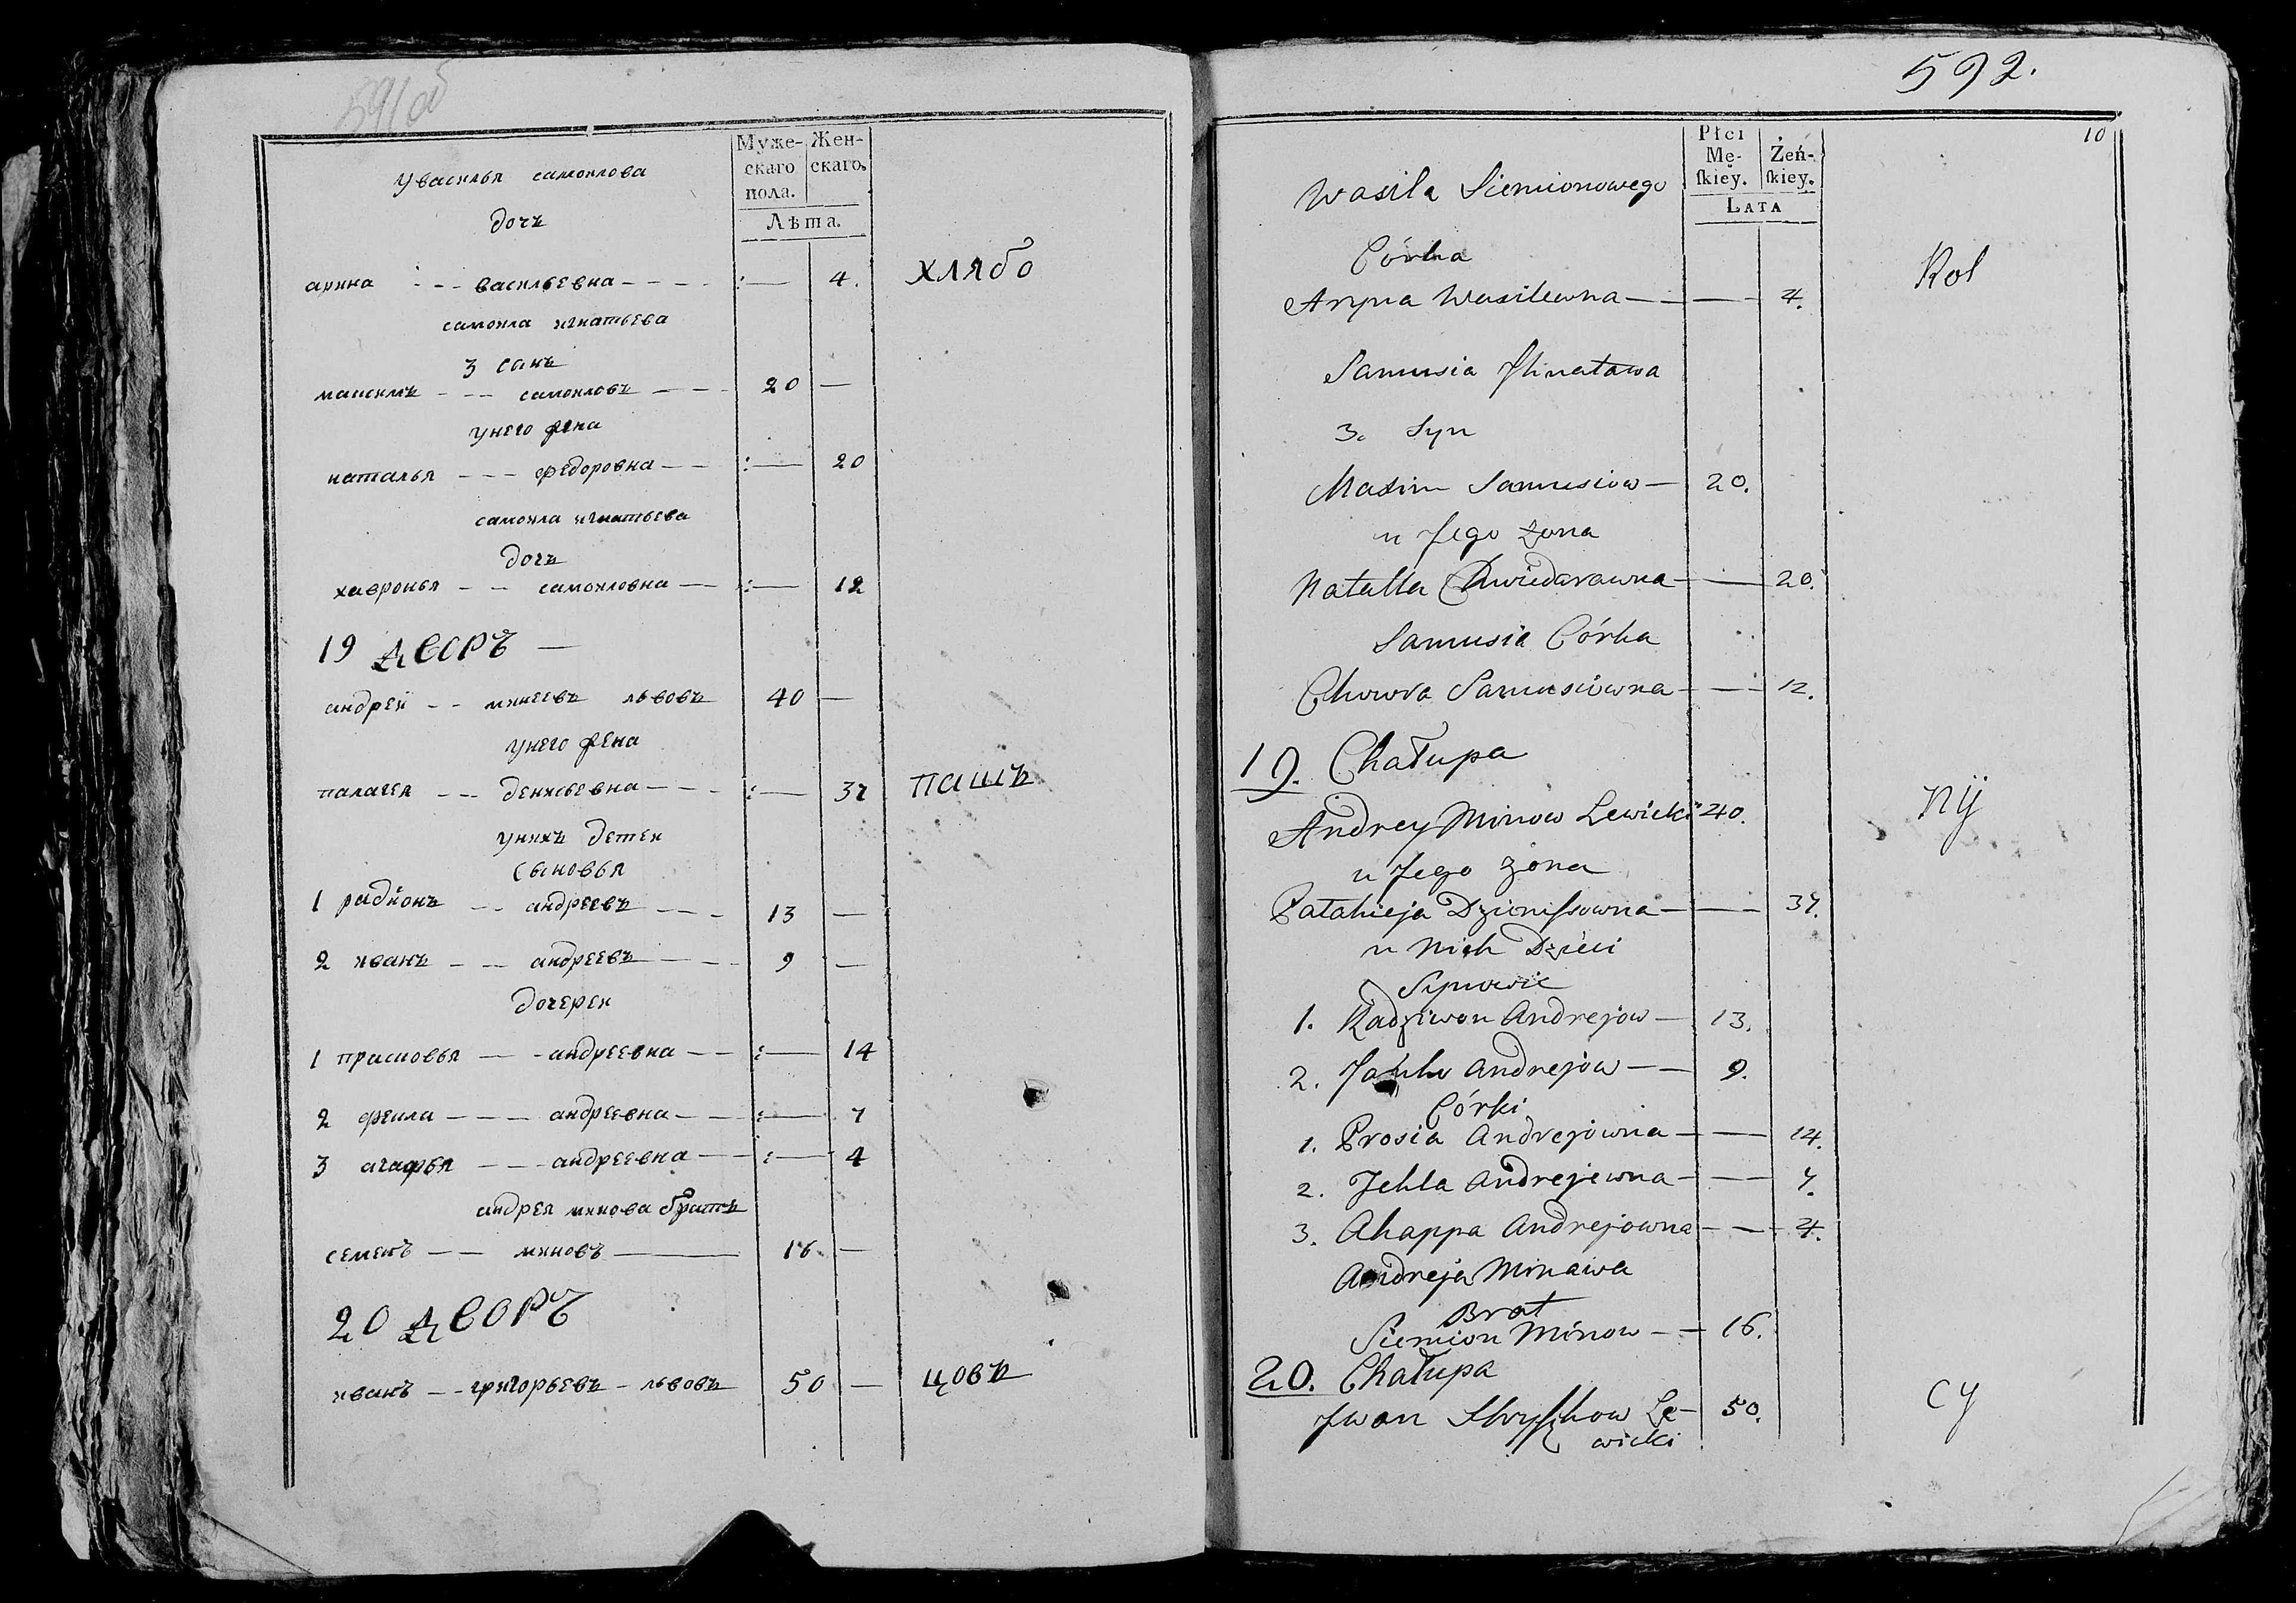 591об
Муже-
скаго
пола.
Жен-
скаго.
Лѣта.
У василья самоилова
дочь
арина --- васильевна ---- :— 4. хлябо
самоила игнатьева
3 сынъ
максимъ --- самоиловъ --- 20 —
унего жена
наталья --- федоровна -- :— 20
самоила игнатьева
дочь
хавронья -- самоиловна — :— 12
19 дворъ —
андреи -- минеевъ львовъ 40 —
унего жена
палагея -- денисьевна --- :— 37 пашъ
унихъ детеи
сыновья
1 радионъ -- андреевъ --- 13 —
2 иванъ -- андреевъ --- 9 —
дочереи
1 прасковья — - андреевна -- :— 14
2 фекла --- андреевна -- :— 7
3 агафья --- андреевна -- :— 4
андрея минова братъ
семенъ -- миновъ — 16 —
20 дворъ
иванъ -- григорьевъ - львовъ 50 — цовъ
592.
10
Płci
Mę-
ſkiey.
Żeń-
ſkiey.
LATA
Wasila Siemionowego
Córka
Aryna Wasilewna — — 4. Rol
Samusia
3. Syn
Maxim Samusiow — 20.
u Jego żona
Natalla Chwiedarawna — — 20.
Samusia Córka
Chowra Samusiowna — — 12.
19. Chałupa
Andrey Minow Lewicki 40. nij
u Jego żona
Pałahieja Dzionissowna — — 37.
u Nich Dzieci
Synowie
1. Radziwon Andrejow — 13.
2. Janko Andrejow — — 9.
Córki
1. Prosia Andrejowna — — 14.
2. Jekla Andrejewna — — 7.
3. Ahappa Andrejowna — — 4.
Andreja Minawa
Brat
Siemion Minow — — 16.
20. Chałupa
Jwan Le- 50. cy
wicki